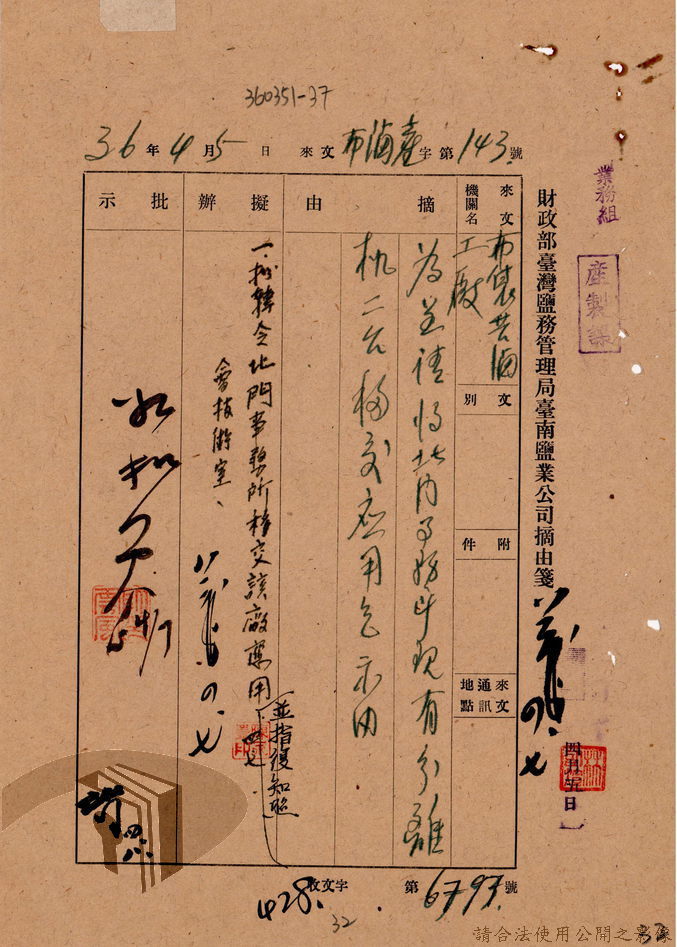 360351-37
36年4月5日 來文布滷產字第143.號
業務組
產製課
財政部臺灣鹽務管理局臺南鹽業公司摘由箋
四月五日
來文機關名
布袋苦滷工廠
文別
附件
來文通訊地點
摘由
為呈請將北門事務所現有分離
機二台移交應用乞示由
擬辦
一、擬轉令北門事務所移交該廠應用
並指復知照
會技術室、
四.七
批示
如擬
4/7
四.八.
收文字第6793.號
428.
32
33
請合法使用公開之影像